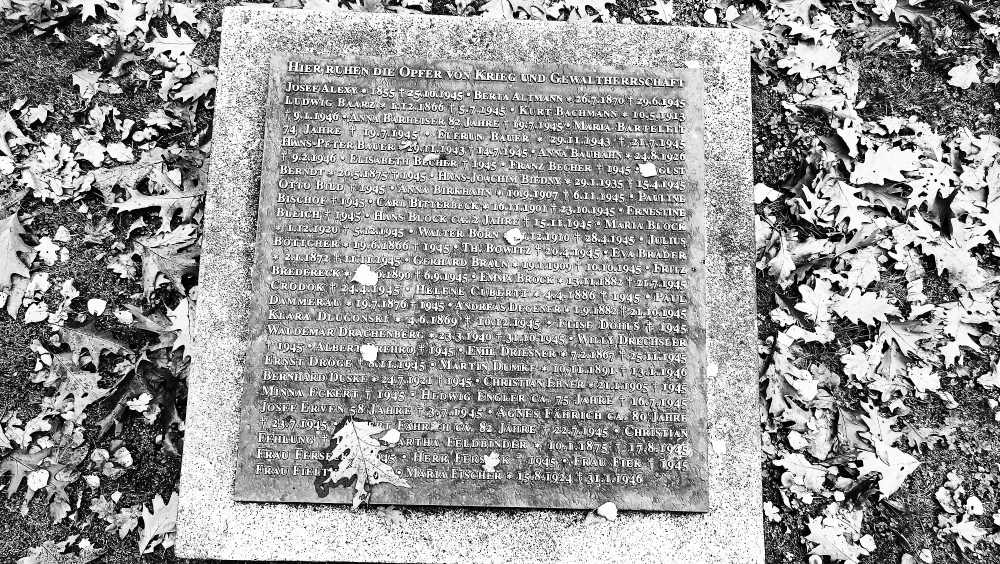 HIER RUHEN DIE OPFER VON KRIEG UND GEWALTHERRSCHAFT
JOSEF ALEXY * 1855 † 25.10.1945 • BERTA ALTMANN * 26.7.1870 † 29.6.1945
LUDWIG BAARZ * 1.12.1866 † 5.7.1945 • KURT BACHMANN * 10.5.1913
† 9.1.1946 • ANNA BARHEISER 82 JAHRE † 19.7.1945 • MARIA BARFELEIT
74 JAHRE † 19.7.1945 • BAUER * 29.11.1943 † 21.7.1945
HANS-PETER BAUER * 29.11.1943 † 14.7.1945 • ANNA BAUHAHN * 24.8.1926
† 9.2.1946 • ELISABETH BECHER † 1945 • FRANZ BECHER † 1945 •
BERNDT * 20.5.1875 † 1945 • HANS-JOACHIM * 29.1.1935 † 15.4.1945
OTTO BILD † 1945 • ANNA BIRKHAHN * 10.9.1907 † 6.11.1945 • PAULINE
BISCHOF † 1945 • CARL BITTERBECK * 16.11.1901 † 23.10.1945 • ERNESTINE
BLEICH † 1945 • HANS BLOCK CA. 2 JAHRE † 15.11.1945 • MARIA BLOCK
* 1.12.1920 † 5.12.1945 • WALTER BORN .12.1910 † 28.4.1945 • JULIUS
BÖTTCHER * 19.6.1866 † 1945 • TH. BOWITZ † 20.4.1945 • EVA BRADER
* 2.1.1872 † 1945 • GERHARD BRAUN * 19.1.1909 † 10.10.1945 • FRITZ
BREDERECK * .1890 † 6.9.1945 • EMMA BROCK * 13.11.1882 † 21.7.1945
CRODOK † 24.4.1945 • HELENE CUBERTT * 4.4.1886 † 1945 • PAUL
DAMMERAU * 19.7.1876 † 1945 • ANDREAS DEGENER * 1.9.1882 † 21.10.1945
KLARA DLUGONSKI * 4.6.1869 † 10.12.1945 • ELISE DÖHLS † 1945
WALDEMAR DRACHENBERG * 23.3.1940 † 31.10.1945 • WILLY DRECHSLER
† 1945 • ALBERT † 1945 • EMIL DRIESNER * 7.2.1867 † 25.11.1945
ERNST DRÖGE † 8.11.1945 • MARTIN DUMKE * 10.11.1891 † 13.1.1946
BERNHARD DUSKE * 24.7.1921 † 1945 • CHRISTIAN EHNER * 21.1.1905 † 1945
MINNA ECKERT † 1945 • HEDWIG ENGLER CA. 75 JAHRE † 16.7.1945
JOSEF ERVEN 58 JAHRE † 3.7.1945 • AGNES FÄHRICH CA. 80 JAHRE
† 23.7.1945 • FÄHRICH CA. 82 JAHRE † 22.7.1945 • CHRISTIAN
FEHLUNG † FELDBINDER * 10.1.1875 † 17.8.1945
FRAU • HERR † 1945 • FRAU FIEK † 1945
FRAU • MARIA FISCHER * 15.8.1924 † 31.1.1946